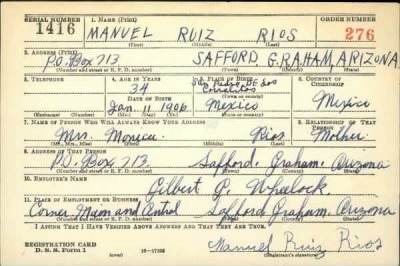 SERIAL NUMBER 1. NAME (Print) ORDER NUMBER
1416 MANUEL RUIZ RIOS 276
(First) (Middle) (Last)
2. ADDRESS (Print)
P.O. Box 713 SAFFORD, GRAHAM, ARIZONA
(Number and street or R. F. D. number) (Town) (County) (State)
3. TELEPHONE 4. AGE IN YEARS 5. PLACE OF BIRTH 6. COUNTRY OF CITIZENSHIP
34 San Pedro De Los Corralitos
DATE OF BIRTH (Town or county)
Jan. 11 1906 Mexico Mexico
(Mo.) (Day) (Yr.) (State or country)
7. NAME OF PERSON WHO WILL ALWAYS KNOW YOUR ADDRESS 8. RELATIONSHIP OF THAT PERSON
Mrs. Monica Rios Mother
(Mr., Mrs., Miss) (First) (Middle) (Last)
9. ADDRESS OF THAT PERSON
P.O. Box 713, Safford, Graham, Arizona
(Number and street or R. F. D. number) (Town) (County) (State)
10. EMPLOYER'S NAME
Gilbert P. Wheelock
11. PLACE OF EMPLOYMENT OR BUSINESS
Corner Main and Safford, Graham, Arizona
(Number and street or R. F. D. number) (Town) (County) (State)
I AFFIRM THAT I HAVE VERIFIED ABOVE ANSWERS AND THAT THEY ARE TRUE.
REGISTRATION CARD Manuel Ruiz Rios
D. S. S. Form 1 (over) (Registrant's signature)